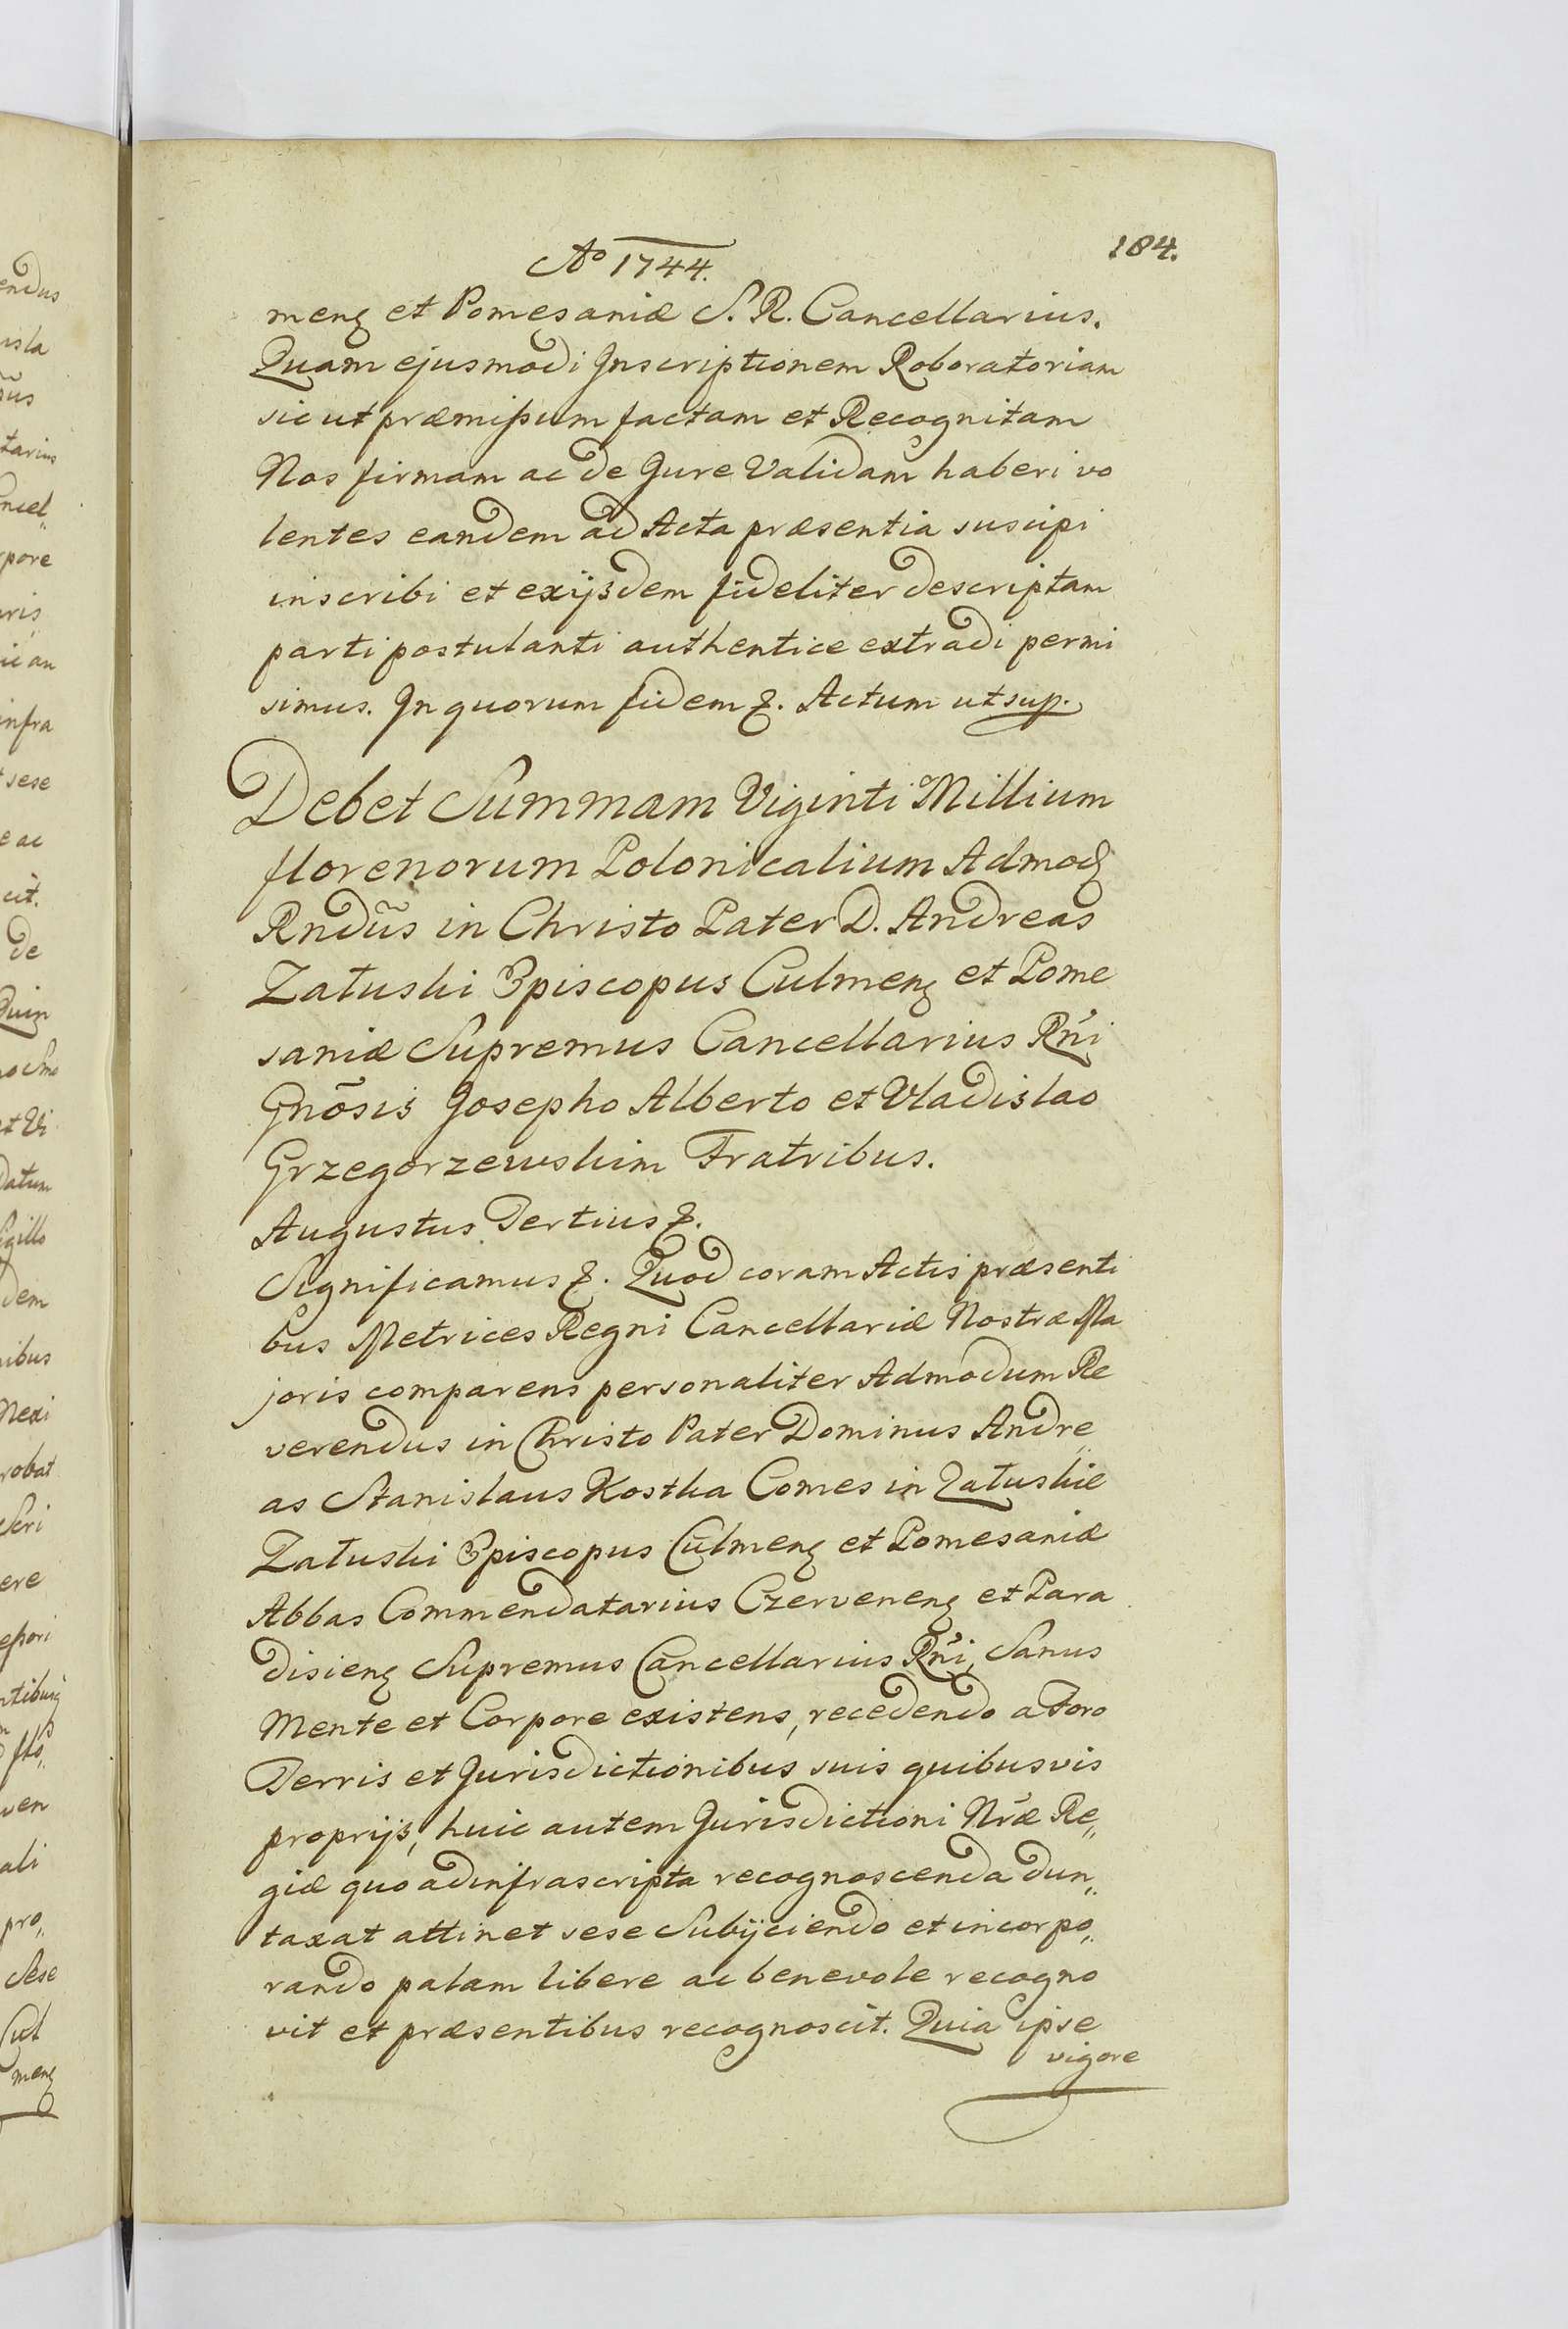 Aº 1744.
184.
meng et Pomesaniæ S. R. Cancellarius.
Quam ejusmodi Inscriptionem Roboratoriam
sic ut præmissum factam et Recognitam
Nos firmam ac de Jure Validam haberi vo
lentes eandem ad Acta præsentia suscipi
inscribi et exijsdem fideliter descriptam
parti postulanti authentice extradi permi
simus. In quorum fidem &. Actum ut sup.
Debet Summam Viginti Millium
florenorum Polonicalium Admod
Rndũs in Christo Pater D. Andreas
Załuski Episcopus Culmeng et Pome
saniæ Supremus Cancellarius Rñi
Gnõsis Josepho Alberto et Vladislao
Grzegorzewskim Fratribus.
Augustus Tertius &.
Significamus &. Quod coram Actis præsenti
bus Metrices Regni Cancellariæ Nostræ Ma
joris comparens personaliter Admodum Re
verendus in Christo Pater Dominus Andre„
as Stanislaus Kostka Comes in Załuskie
Załuski Episcopus Culmeng et Pomesaniæ
Abbas Commendatarius Czerveneng et Para
disieng Supremus Cancellarius Rñi, Sanus
Mente et Corpore existens, recedendo a Foro
Terris et Jurisdictionibus suis quibusvis
proprijs, huic autem Jurisdictioni Nræ Re„
giæ quo ad infrascripta recognoscenda dun„
taxat attinet sese Subijciendo et incorpo„
rando palam libere ac benevole recogno
vit et præsentibus recognoscit. Quia ipse
vigore